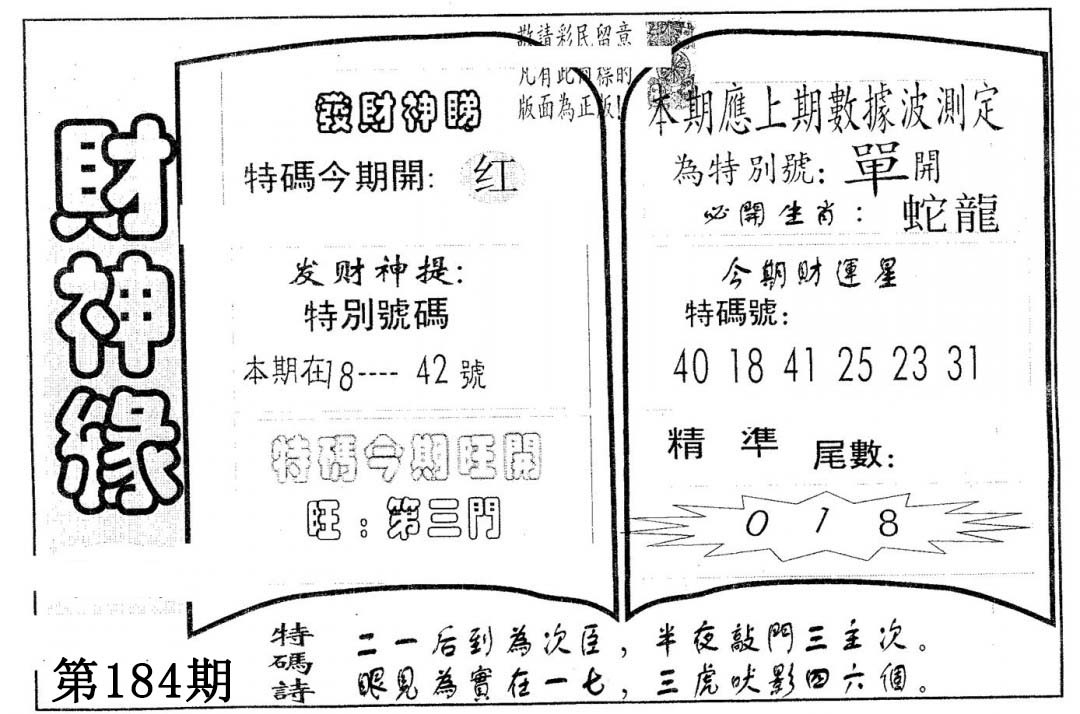 財神緣
敬請彩民留意
凡有此同樣的
版面為正版!
發財神睇
特碼今期開: 红
发财神提:
特別號碼
本期在18----42號
特碼今期旺開
旺:第三門
本期應上期數據波測定
為特別號:單開
必開生肖:蛇龍
今期財運星
特碼號:
40 18 41 25 23 31
精準尾數:
0 1 8
特碼詩
二一后到為次臣,半夜敲門三主次。
眼見為實在一七,三虎吠影四六個。
第184期